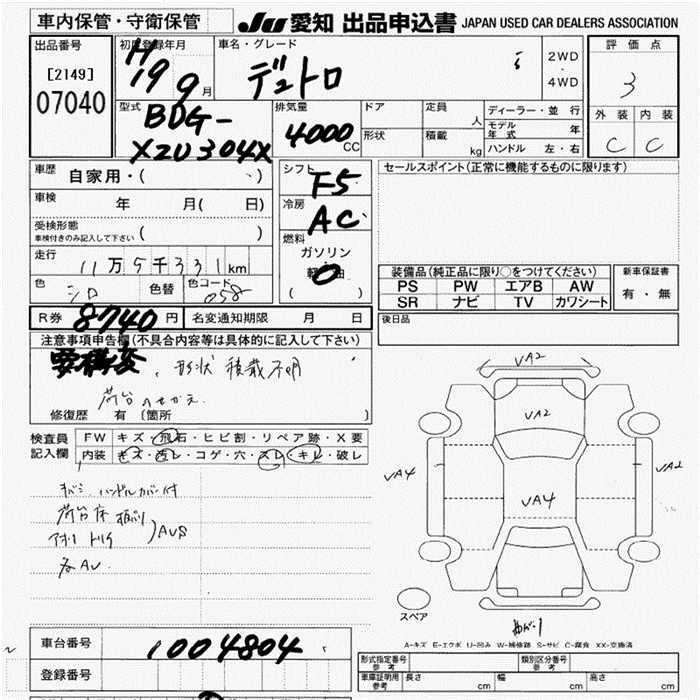 車内保管・守衛保管
JU 愛知 出品申込書 JAPAN USED CAR DEALERS ASSOCIATION
出品番号
[2149]
07040
初度登録年月
H 19 9 月
車名・グレード
デュトロ
2WD
・
4WD
評価点
3
外装 内装
C C
型式
BDG-
XZU304X
排気量
4000 CC
ドア
形状
定員
人
積載
kg
ディーラー・並行
モデル年式 年
ハンドル 左・右
車歴
自家用・( )
車検
年 月( 日)
受検形態
車検付きのみ記入して下さい ( )
走行
11万5千331km
色
シロ
色替
色コード
058
シフト
F5
冷房
AC
燃料
ガソリン
軽油
( )
セールスポイント(正常に機能するものに限ります)
装備品(純正品に限り○をつけてください)
PS PW エアB AW
SR ナビ TV カワシート
新車保証書
有・無
R券 8740 円
名変通知期限 月 日
後日品
注意事項申告欄(不具合内容等は具体的に記入して下さい)
要構変、形状 積載不明
荷台のせかえ
修復歴 有 〔箇所 〕
検査員
記入欄
FW キズ・飛石・ヒビ割・リペア跡・X要
内装 キズ・汚レ・コゲ・穴・スレ・キレ・破レ
ハンドルカバー付
荷台床
AUS
各AU
VA2
VA2
VA4
VA4
VA2
スペア
A-キズ E-エクボ U-凹み W-補修跡 S-サビ C-腐食 XX-交換済
車台番号
1004804
登録番号
形式指定番号
参考
類別区分番号
参考
車庫証明用
参考
長さ cm
幅 cm
高さ cm